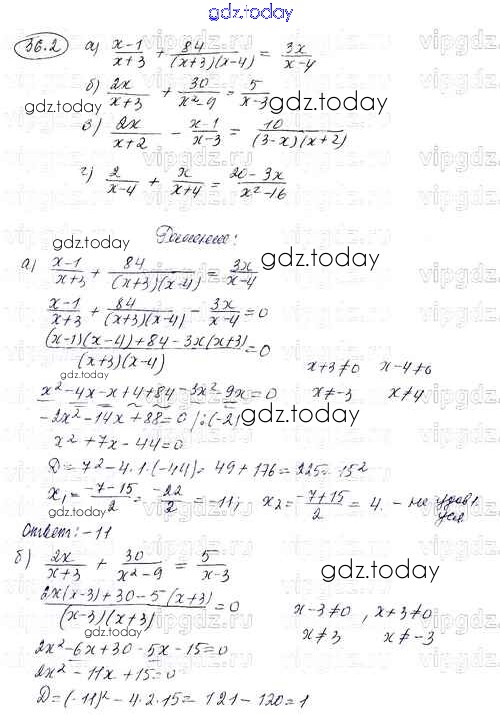 gdz.today
36.2 а) \frac{x-1}{x+3} + \frac{84}{(x+3)(x-4)} = \frac{3x}{x-4}
б) \frac{2x}{x+3} + \frac{30}{x²-9} = \frac{5}{x-3}
в) \frac{2x}{x+2} - \frac{x-1}{x-3} = \frac{10}{(3-x)(x+2)}
г) \frac{2}{x-4} + \frac{x}{x+4} = \frac{20-3x}{x²-16}
Решение:
а) \frac{x-1}{x+3} + \frac{84}{(x+3)(x-4)} = \frac{3x}{x-4}
\frac{x-1}{x+3} + \frac{84}{(x+3)(x-4)} - \frac{3x}{x-4} = 0
\frac{(x-1)(x-4)+84-3x(x+3)}{(x+3)(x-4)} = 0
x+3≠0 x-4≠0
x≠-3 x≠4
x²-4x-x+4+84-3x²-9x=0
-2x²-14x+88=0 |:(-2)
x²+7x-44=0
D=7²-4·1·(-44)=49+176=225=15²
x₁=\frac{-7-15}{2}=\frac{-22}{2}=-11; x₂=\frac{-7+15}{2}=4. - не удовл. усл
Ответ: -11
б) \frac{2x}{x+3} + \frac{30}{x²-9} = \frac{5}{x-3}
\frac{2x(x-3)+30-5(x+3)}{(x-3)(x+3)} = 0
x-3≠0, x+3≠0
x≠3 x≠-3
2x²-6x+30-5x-15=0
2x²-11x+15=0
D=(-11)²-4·2·15=121-120=1
gdz.today
gdz.today
gdz.today
gdz.today
gdz.today
gdz.today
gdz.today
gdz.today
gdz.today
gdz.today